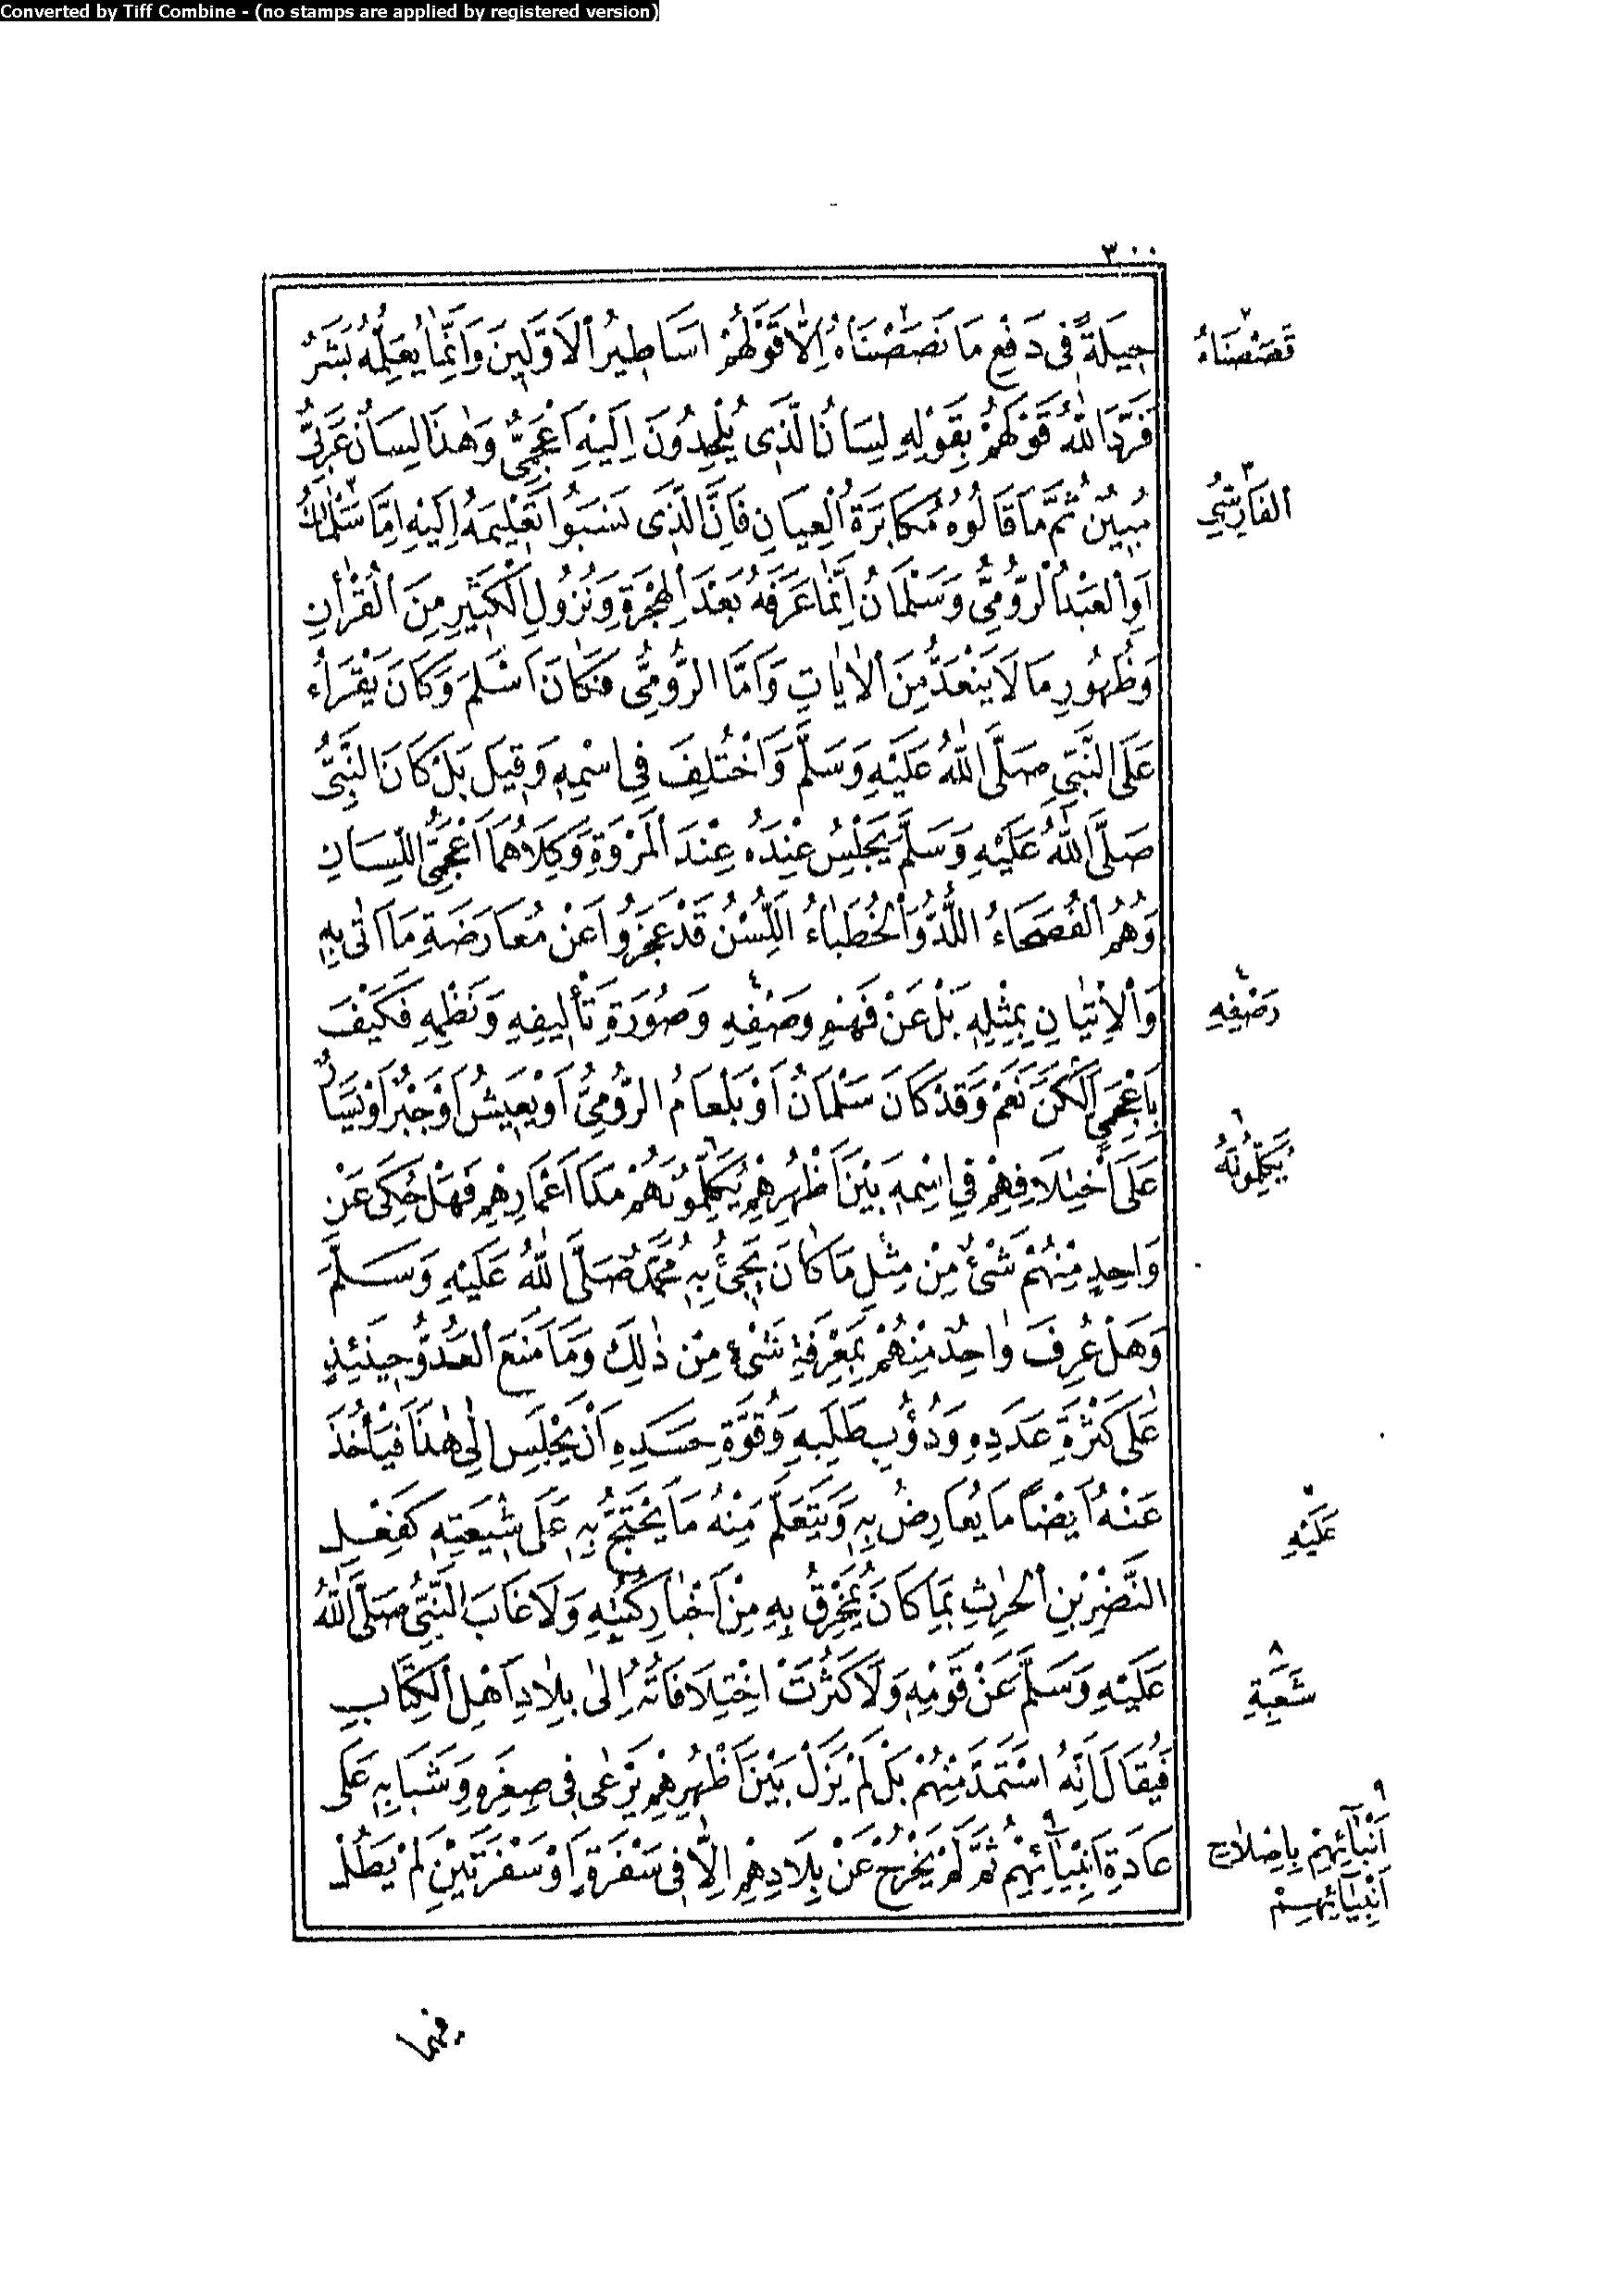 Converted by Tiff Combine - (no stamps are applied by registered version)
٣٠٠
حِيلَةً فِي دَفْعِ مَا نَصَصْنَاهُ إِلَّا قَوْلَهُمْ اَسَاطِيرُ الْاَوَّلِينَ وَاِنَّمَا يُعَلِّمُهُ بَشَرٌ
فَرَدَّ اللهُ قَوْلَهُمْ بِقَوْلِهِ لِسَانُ الَّذِى يُلْحِدُونَ اِلَيْهِ اَعْجَمِىٌّ وَهٰذَا لِسَانٌ عَرَبِىٌّ
مُبِينٌ ثُمَّ مَا قَالُوهُ مُكَابَرَةُ الْعِيَانِ فَاِنَّ الَّذِى نَسَبُوا تَعْلِيمَهُ اِلَيْهِ اِمَّا سَلْمَانُ
اَوِ الْعَبْدُ الرُّومِىُّ وَسَلْمَانُ اِنَّمَا عَرَفَهُ بَعْدَ الْهِجْرَةِ وَنُزُولِ الْكَثِيرِ مِنَ الْقُرْاٰنِ
وَظُهُورِ مَا لَا يَنْعَدُّ مِنَ الْاٰيَاتِ وَاَمَّا الرُّومِىُّ فَكَانَ اَسْلَمَ وَكَانَ يَقْرَاُ
عَلَى النَّبِىِّ صَلَّى اللهُ عَلَيْهِ وَسَلَّمَ وَاخْتُلِفَ فِى اسْمِهِ وَقِيلَ بَلْ كَانَ النَّبِىُّ
صَلَّى اللهُ عَلَيْهِ وَسَلَّمَ يَجْلِسُ عِنْدَهُ عِنْدَ الْمَرْوَةِ وَكِلَاهُمَا اَعْجَمِىُّ اللِّسَانِ
وَهُمُ الْفُصَحَاءُ اللُّدُّ وَالْخُطَبَاءُ اللُّسْنُ قَدْ عَجَزُوا عَنْ مُعَارَضَةِ مَا اَتٰى بِهِ
وَالْاِتْيَانِ بِمِثْلِهِ بَلْ عَنْ فَهْمِ وَصْفِهِ وَصُورَةِ تَأْلِيفِهِ وَنَظْمِهِ فَكَيْفَ
بِاَعْجَمِىٍّ اَلْكَنَ نَعَمْ وَقَدْ كَانَ سَلْمَانُ اَوْ بَلْعَامُ الرُّومِىُّ اَوْ يَعِيشُ اَوْ جَبْرٌ اَوْ يَسَارٌ
عَلَى اخْتِلَافِهِمْ فِى اسْمِهِ بَيْنَ اَظْهُرِهِمْ يُكَلِّمُونَهُمْ مَدَا اَعْمَارِهِمْ فَهَلْ حُكِىَ عَنْ
وَاحِدٍ مِنْهُمْ شَىْءٌ مِنْ مِثْلِ مَا كَانَ يَجِىءُ بِهِ مُحَمَّدٌ صَلَّى اللهُ عَلَيْهِ وَسَلَّمَ
وَهَلْ عُرِفَ وَاحِدٌ مِنْهُمْ بِمَعْرِفَةِ شَىْءٍ مِنْ ذٰلِكَ وَمَا مَنَعَ الْعَدُوَّ حِينَئِذٍ
عَلٰى كَثْرَةِ عَدَدِهِ وَدُؤُبِ طَلَبِهِ وَقُوَّةِ حَسَدِهِ اَنْ يَجْلِسَ اِلٰى هٰذَا فَيَأْخُذَ
عَنْهُ اَيْضًا مَا يُعَارِضُ بِهِ وَيَتَعَلَّمَ مِنْهُ مَا يَحْتَجُّ بِهِ عَلَى شِيعَتِهِ كَفِعْلِ
النَّضْرِ بْنِ الْحٰرِثِ بِمَا كَانَ يُمَخْرِقُ بِهِ مِنْ اَخْبَارِ كُتُبِهِ وَلَا غَابَ النَّبِىُّ صَلَّى اللهُ
عَلَيْهِ وَسَلَّمَ عَنْ قَوْمِهِ وَلَا كَثُرَتْ اخْتِلَافَاتُهُ اِلٰى بِلَادِ اَهْلِ الْكِتَابِ
فَيُقَالَ اَنَّهُ اسْتَمَدَّ مِنْهُمْ بَلْ لَمْ يَزَلْ بَيْنَ اَظْهُرِهِمْ يَرْعٰى فِى صِغَرِهِ وَشَبَابِهِ عَلٰى
عَادَةِ اَنْبِيَائِهِمْ ثُمَّ لَمْ يَخْرُجْ عَنْ بِلَادِهِمْ اِلَّا فِى سَفْرَةٍ اَوْ سَفْرَتَيْنِ لَمْ يَطُلْ
٢
قَصَصْنَاهُ
٣
الْفَارِسِىُّ
٤
رَصْفِهِ
٦
يُكَلِّمُونَهُ
عَلَيْهِ
٨
شَعْبَةِ
٩
اَبْنَائِهِمْ بِاِصْلَاحِ
اَنْبِيَائِهِمْ
فيهما